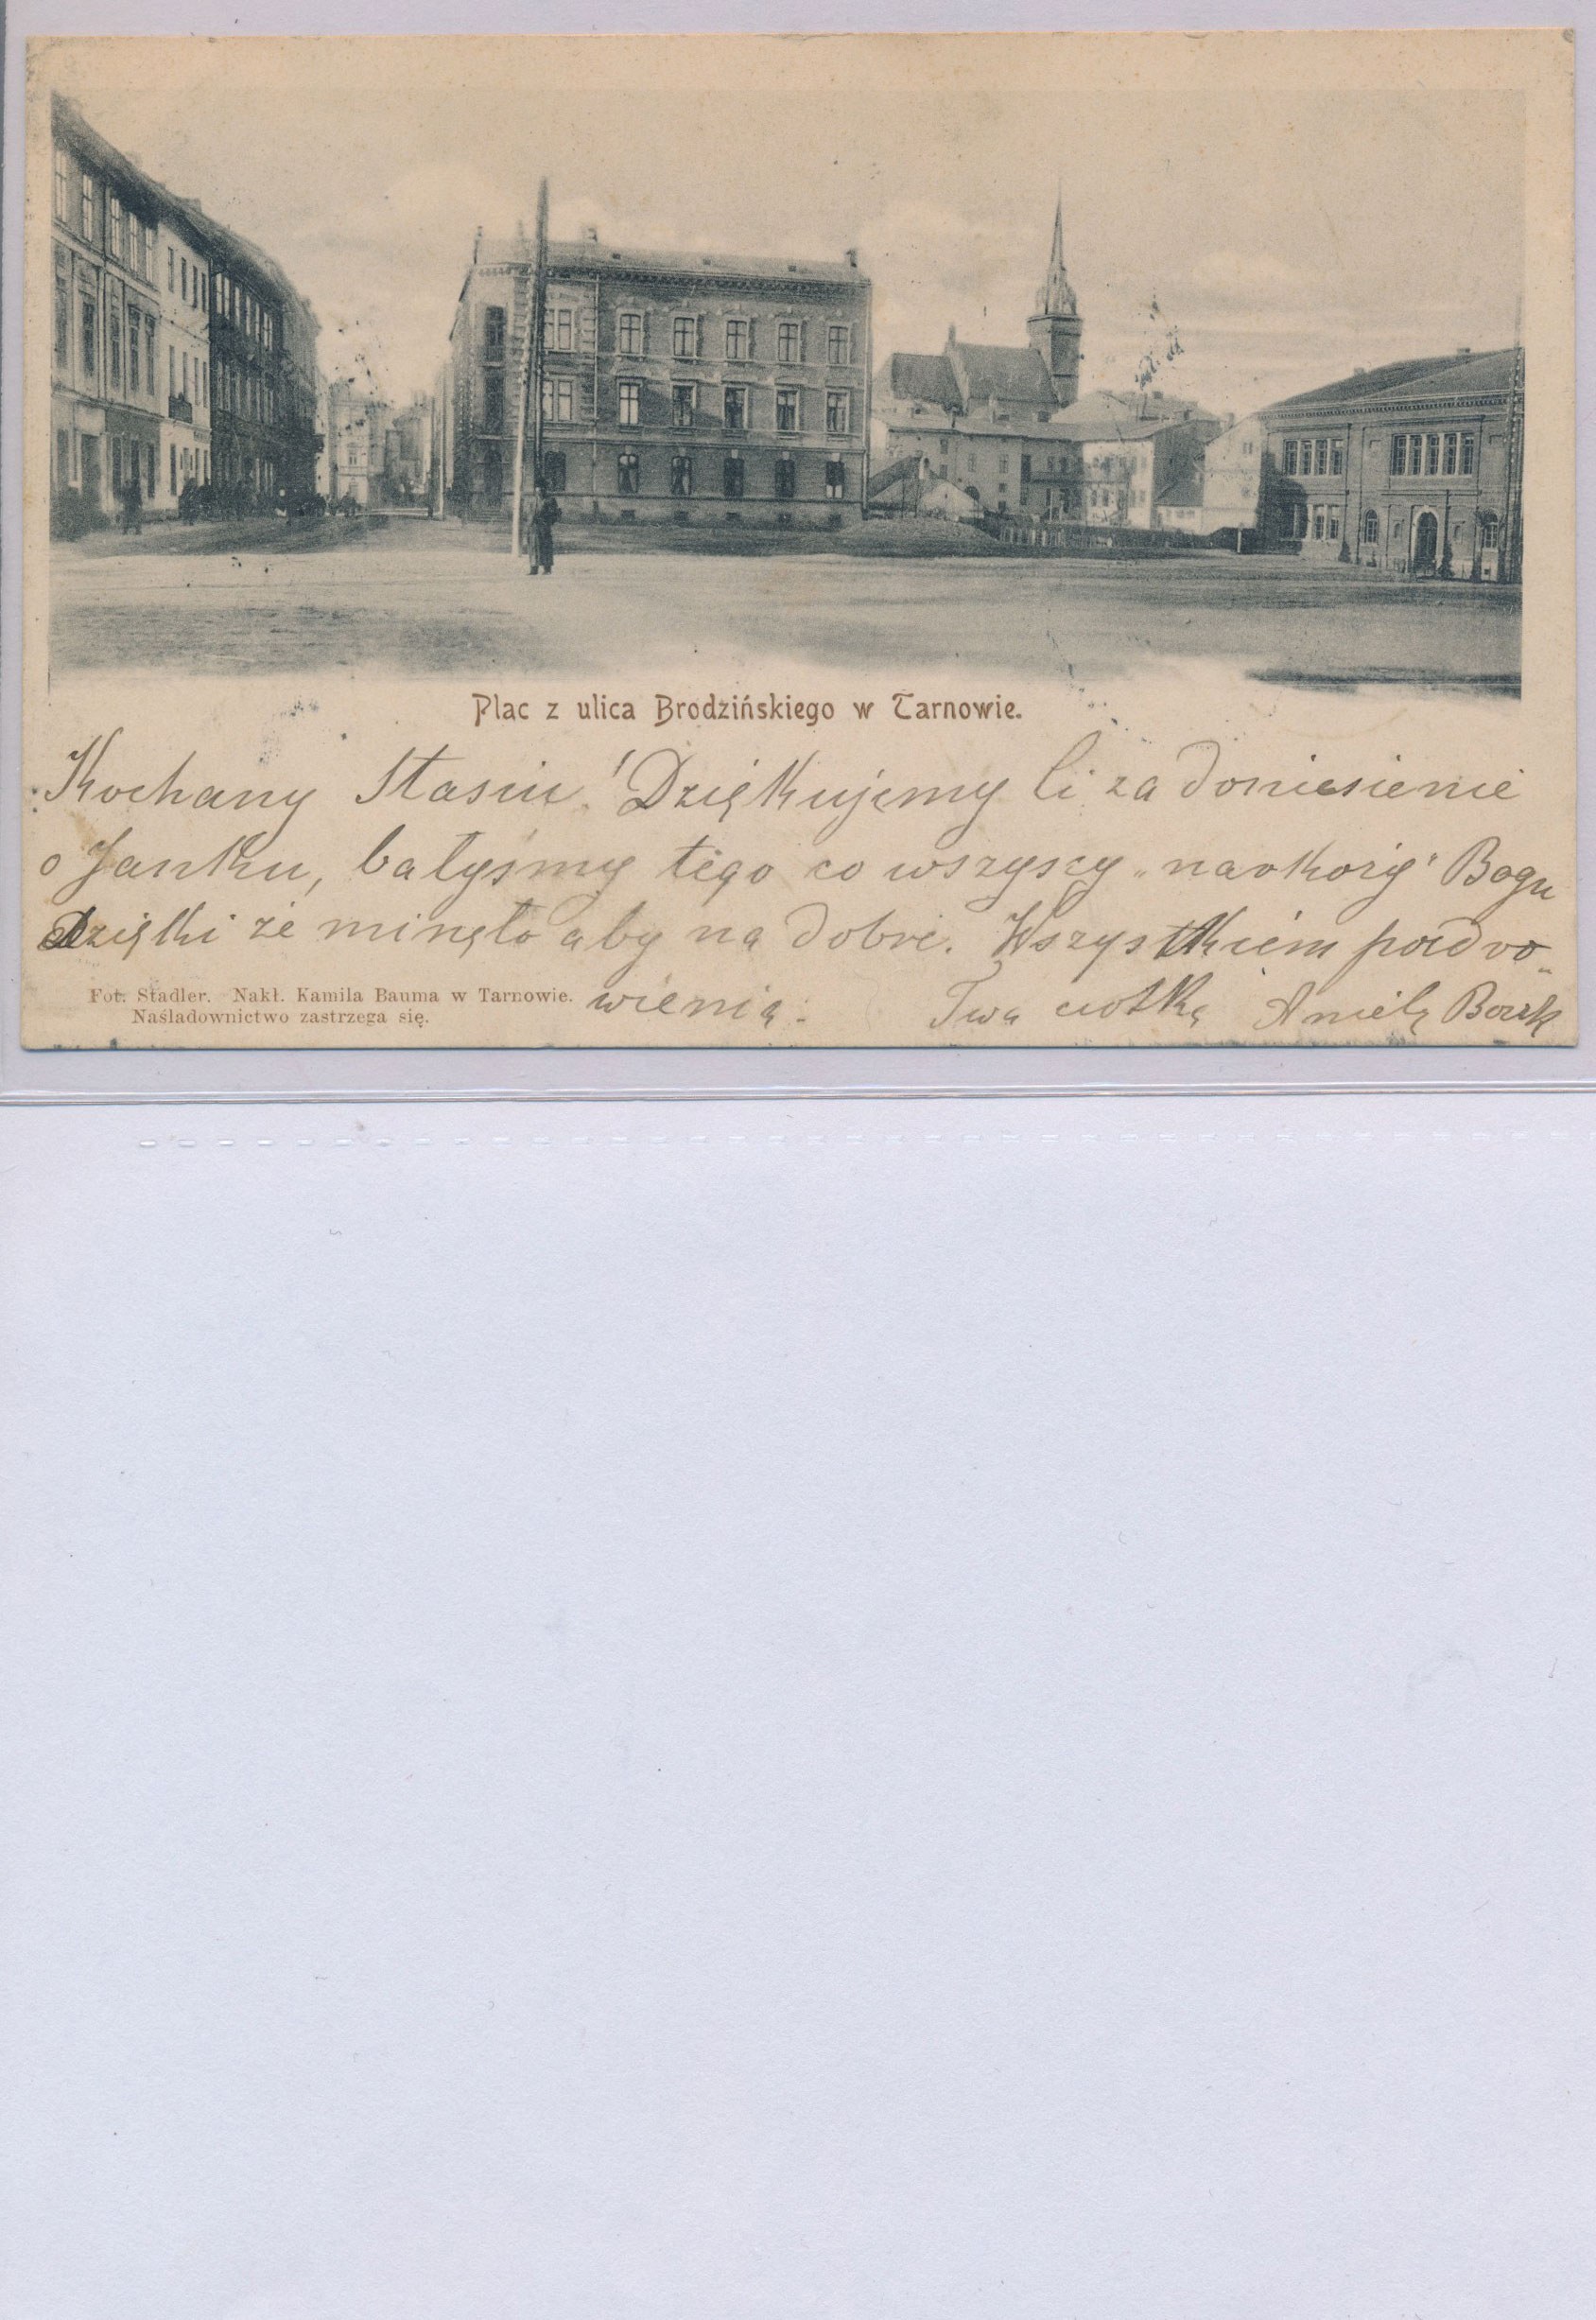 Plac z ulica Brodzińskiego w Tarnowie.
Kochany Stasiu! Dziękujemy Ci za doniesienie
o Janku, bałyśmy tego co wszyscy „narkozy" Bogu
Dzięki że minęło aby na dobre. Wszystkiem pozdro-
wienia. Twa ciotka Aniela
Fot. Stadler. Nakł. Kamila Bauma w Tarnowie.
Naśladownictwo zastrzega się.